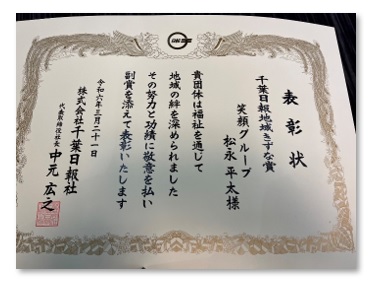 表彰状
千葉日報地域きずな賞
笑顔グループ
松永 平太 様
貴団体は福祉を通じて
地域の絆を深められました
その努力と功績に敬意を払い
副賞を添えて表彰いたします
令和六年三月二十一日
株式会社千葉日報社
代表取締役社長 中元 広之